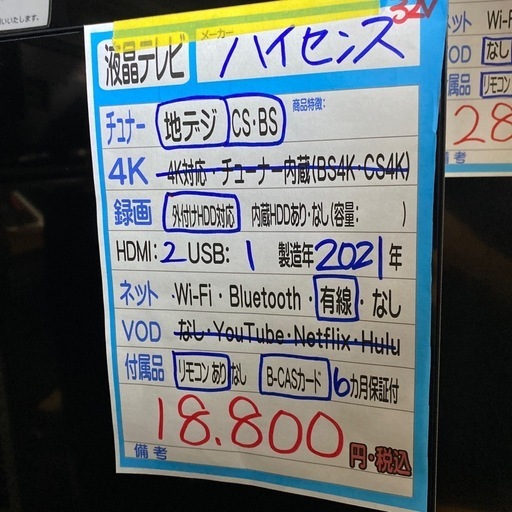 いいたします。
32V
液晶テレビ メーカー ハイセンス
チュナー 地デジ CS・BS 商品特徴:
4K 4K対応・チューナー内蔵(BS4K・CS4K)
録画 外付けHDD対応 内蔵HDDあり・なし(容量: )
HDMI: 2 USB: 1 製造年 2021年
ネット ・Wi-Fi・Bluetooth・有線・なし
VOD なし・YouTube・Netflix・Hulu
付属品 リモコンあり なし B-CASカード 6カ月保証付
18.800 円・税込
備考
ネット Wi-F
VOD なし
属品 リモコン
28
備考